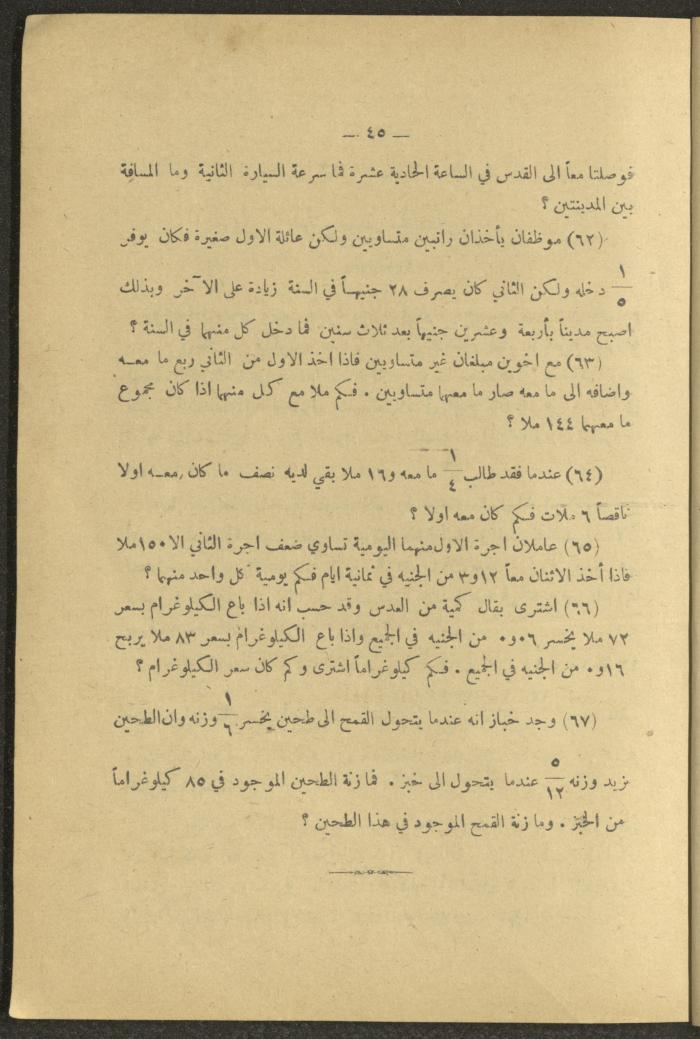 — ٤٥ —
فوصلتا معاً الى القدس في الساعة الحادية عشرة فما سرعة السيارة الثانية وما المسافة
بين المدينتين ؟
(٦٢) موظفان يأخذان راتبين متساويين ولكن عائلة الاول صغيرة فكان يوفر
١/٥ دخله ولكن الثاني كان يصرف ٢٨ جنيهاً في السنة زيادة على الآخر وبذلك
اصبح مديناً بأربعة وعشرين جنيهاً بعد ثلاث سنين فما دخل كل منهما في السنة ؟
(٦٣) مع اخوين مبلغان غير متساويين فاذا اخذ الاول من الثاني ربع ما معه
واضافه الى ما معه صار ما معهما متساويين . فكم ملا مع كل منهما اذا كان مجموع
ما معهما ١٤٤ ملا ؟
(٦٤) عندما فقد طالب ١/٤ ما معه و١٦ ملا بقي لديه نصف ما كان معه اولا
ناقصاً ٦ ملات فكم كان معه اولا ؟
(٦٥) عاملان اجرة الاول منهما اليومية تساوي ضعف اجرة الثاني الا ١٥٠ ملا
فاذا أخذ الاثنان معاً ١٢و٣ من الجنيه في ثمانية ايام فكم يومية كل واحد منهما ؟
(٦٦) اشترى بقال كمية من العدس وقد حسب انه اذا باع الكيلوغرام بسعر
٧٢ ملا يخسر ٠٦و٠ من الجنيه في الجميع واذا باع الكيلوغرام بسعر ٨٣ ملا يربح
١٦و٠ من الجنيه في الجميع . فكم كيلوغراماً اشترى وكم كان سعر الكيلوغرام ؟
(٦٧) وجد خباز انه عندما يتحول القمح الى طحين يخسر ١/٦ وزنه وان الطحين
يزيد وزنه ٥/١٢ عندما يتحول الى خبز . فما زنة الطحين الموجود في ٨٥ كيلوغراماً
من الخبز . وما زنة القمح الموجود في هذا الطحين ؟